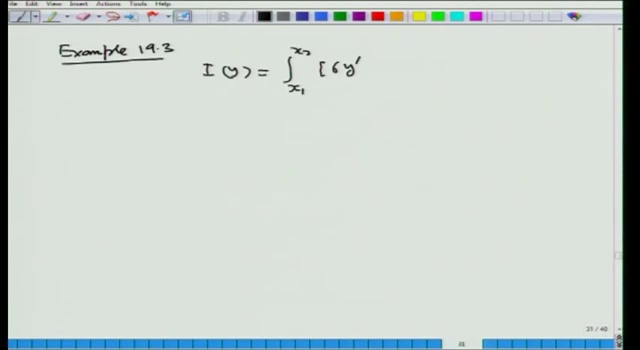 File Edit View Insert Actions Tools Help
Example 19.3
I (y) = ∫_{x₁}^{x₂} [6y'
21 / 40
21